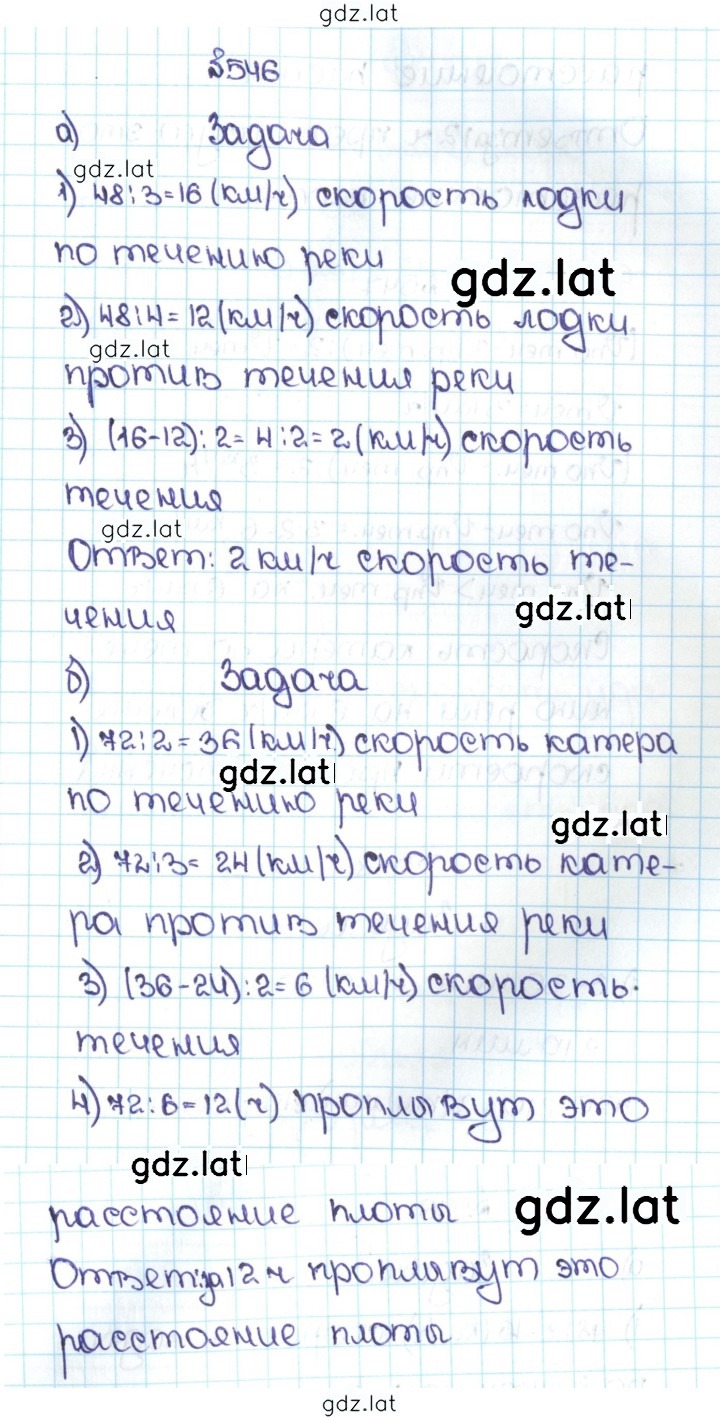 gdz.lat
№546
а) Задача
gdz.lat
1) 48:3=16 (км/ч) скорость лодки
по течению реки
gdz.lat
2) 48:4=12 (км/ч) скорость лодки
gdz.lat
против течения реки
3) (16-12):2=4:2=2 (км/ч) скорость
течения
gdz.lat
Ответ: 2 км/ч скорость те-
gdz.lat
чения
б) Задача
1) 72:2=36 (км/ч) скорость катера
gdz.lat
по течению реки
gdz.lat
2) 72:3=24 (км/ч) скорость кате-
ра против течения реки
3) (36-24):2=6 (км/ч) скорость
течения
4) 72:6=12 (ч) проплывут это
gdz.lat
расстояние плоты
gdz.lat
Ответ: за 12 ч проплывут это
расстояние плоты
gdz.lat